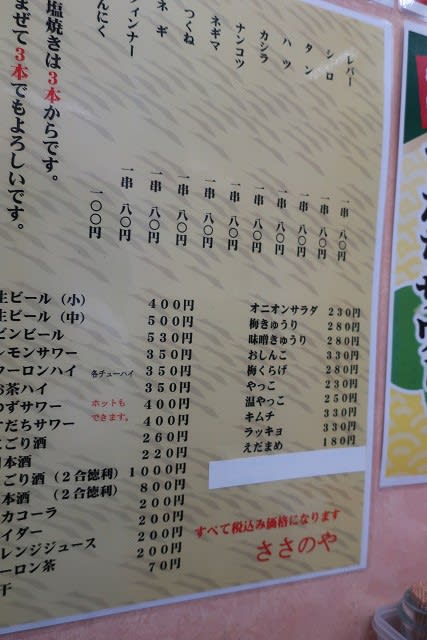 レバー 一串 八〇円
シロ 一串 八〇円
タン 一串 八〇円
ハツ 一串 八〇円
カシラ 一串 八〇円
ナンコツ 一串 八〇円
ネギマ 一串 八〇円
つくね 一串 八〇円
ネギ 一串 八〇円
ィンナー 一串 八〇円
んにく 一〇〇円
塩焼きは3本からです。
まぜて3本でもよろしいです。
生ビール（小） 400円
生ビール（中） 500円
ビンビール 530円
レモンサワー 350円
ウーロンハイ 各チューハイ 350円
お茶ハイ 350円
ゆずサワー ホットもできます。 400円
すだちサワー 400円
にごり酒 260円
日本酒 220円
にごり酒（2合徳利） 1000円
日本酒（2合徳利） 800円
カコーラ 200円
イダー 200円
レンジジュース 200円
ーロン茶 200円
干 70円
オニオンサラダ 230円
梅きゅうり 280円
味噌きゅうり 280円
おしんこ 330円
梅くらげ 280円
やっこ 230円
温やっこ 250円
キムチ 330円
ラッキョ 330円
えだまめ 180円
すべて税込み価格になります
ささのや